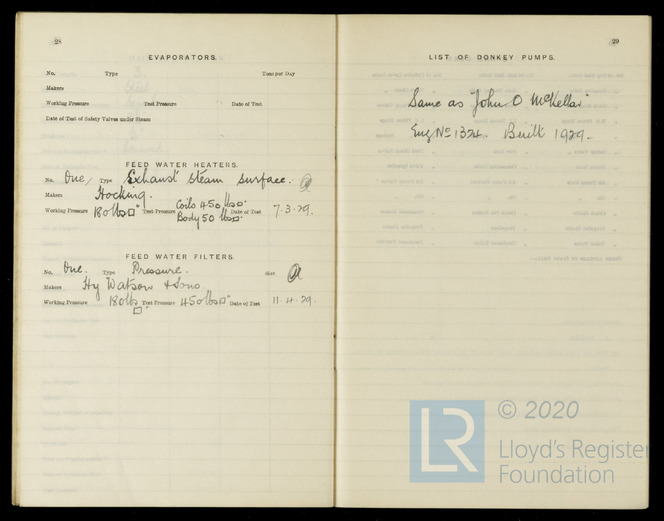 28
EVAPORATORS.
No. Type Tons per Day
Makers
Working Pressure Test Pressure Date of Test
Date of Test of Safety Valves under Steam
FEED WATER HEATERS.
No. One, Type Exhaust steam surface.
Makers Hocking.
Working Pressure 180 lbs□" Test Pressure Coils 450 lbs□" Body 50 lbs□" Date of Test 7.3.29.
FEED WATER FILTERS.
No. One. Type Pressure. Size
Makers Hy Watson & Sons.
Working Pressure 180 lbs □" Test Pressure 450 lbs□" Date of Test 11.4.29.
29
LIST OF DONKEY PUMPS.
Same as "John O McKellar"
Eng No 1324. Built 1929.
LR
© 2020
Lloyd's Register
Foundation